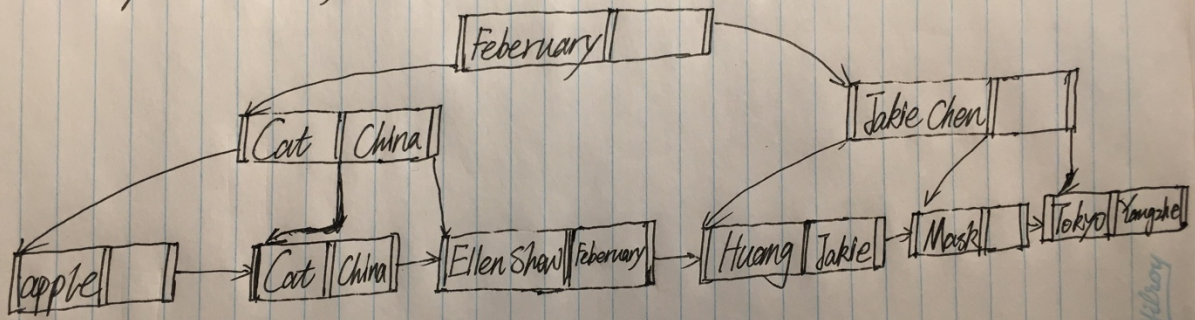 Feberuary
Cat China
Jakie Chen
apple
Cat China
Ellen Show Feberuary
Huang Jakie
Mask
Tokyo Yangzhe